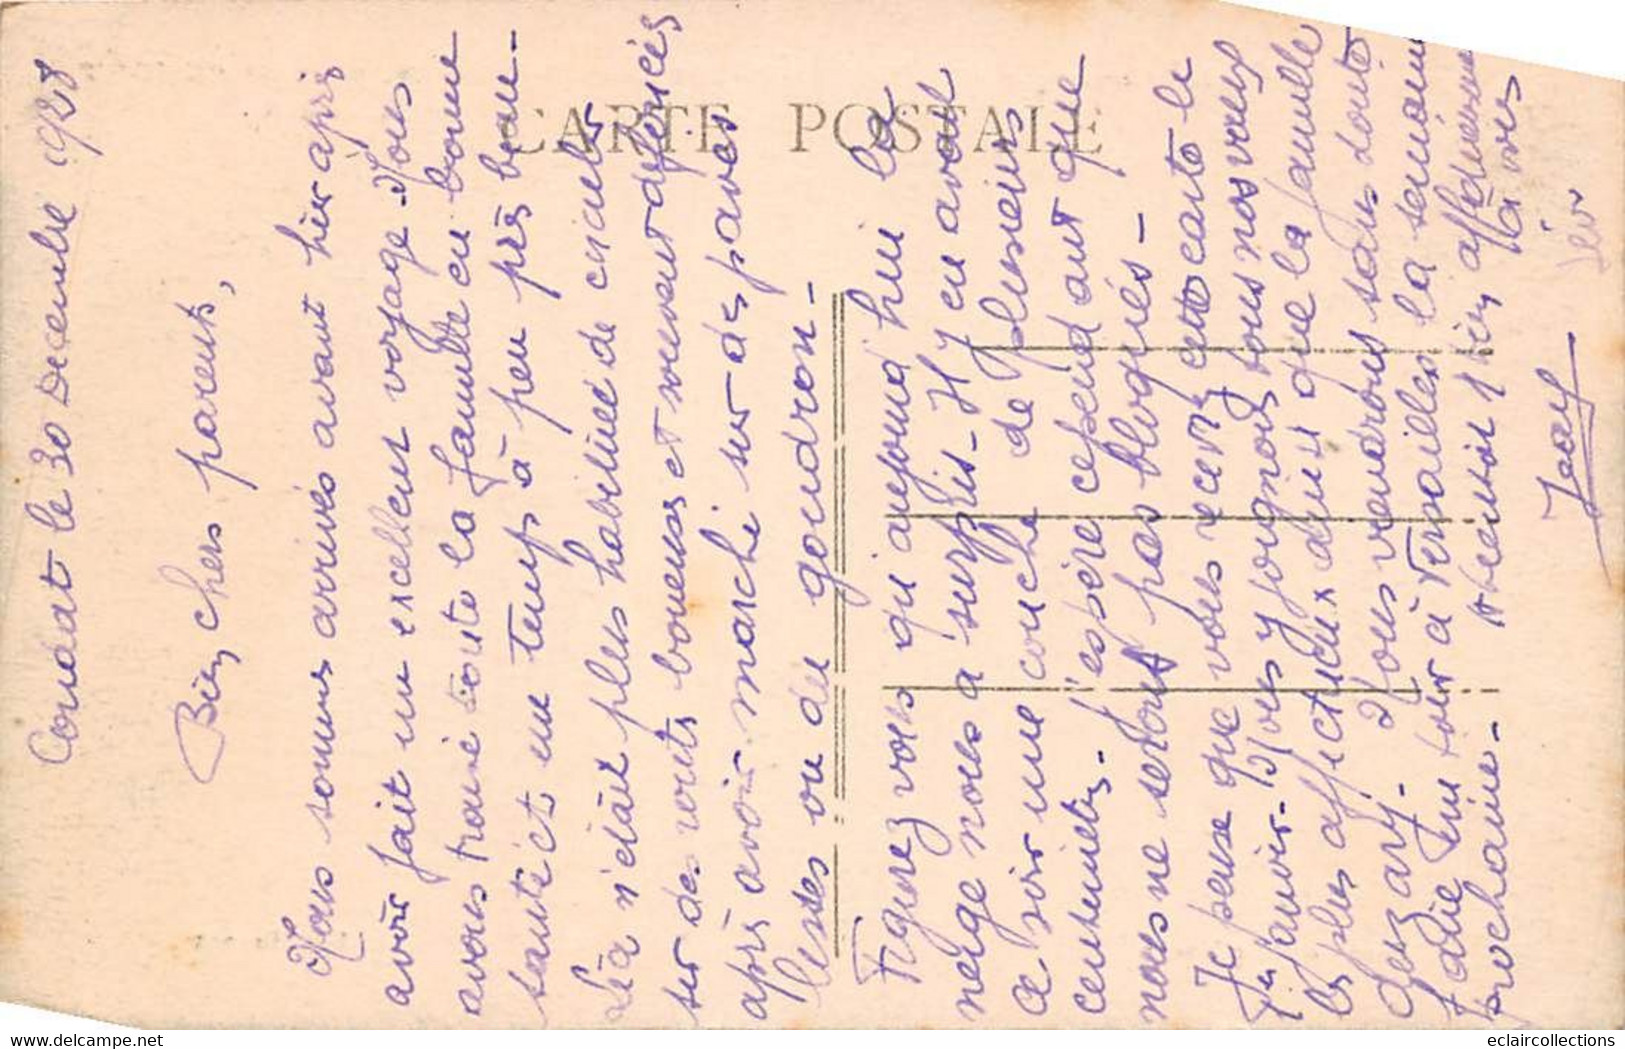 Condat le 30 Décembre 1928
Bien chers parents,
Nous sommes arrivés avant hier après
avoir fait un excellent voyage. Nous
avons trouvé toute la famille en bonne
santé et un temps à peu près beau -
Léa n'était plus habituée de circuler
sur des routes boueuses et souvent défoncées
après avoir marché sur des pavés
lisses ou du goudron -
CARTE POSTALE
Figurez vous qu'aujourd'hui la
neige nous a surpris - Il y en avait
ce soir une couche de plusieurs
centimètres - J'espère cependant que
nous ne serons pas bloqués -
Je pense que vous recevrez cette carte le
1er janvier - Nous y joignons tous nos vœux
les plus affectueux ainsi que la famille
Nous viendrons sans doute
faire un tour à Versailles la semaine
prochaine - Attention bien affectueuse
à vos
Jean
eclaircollections